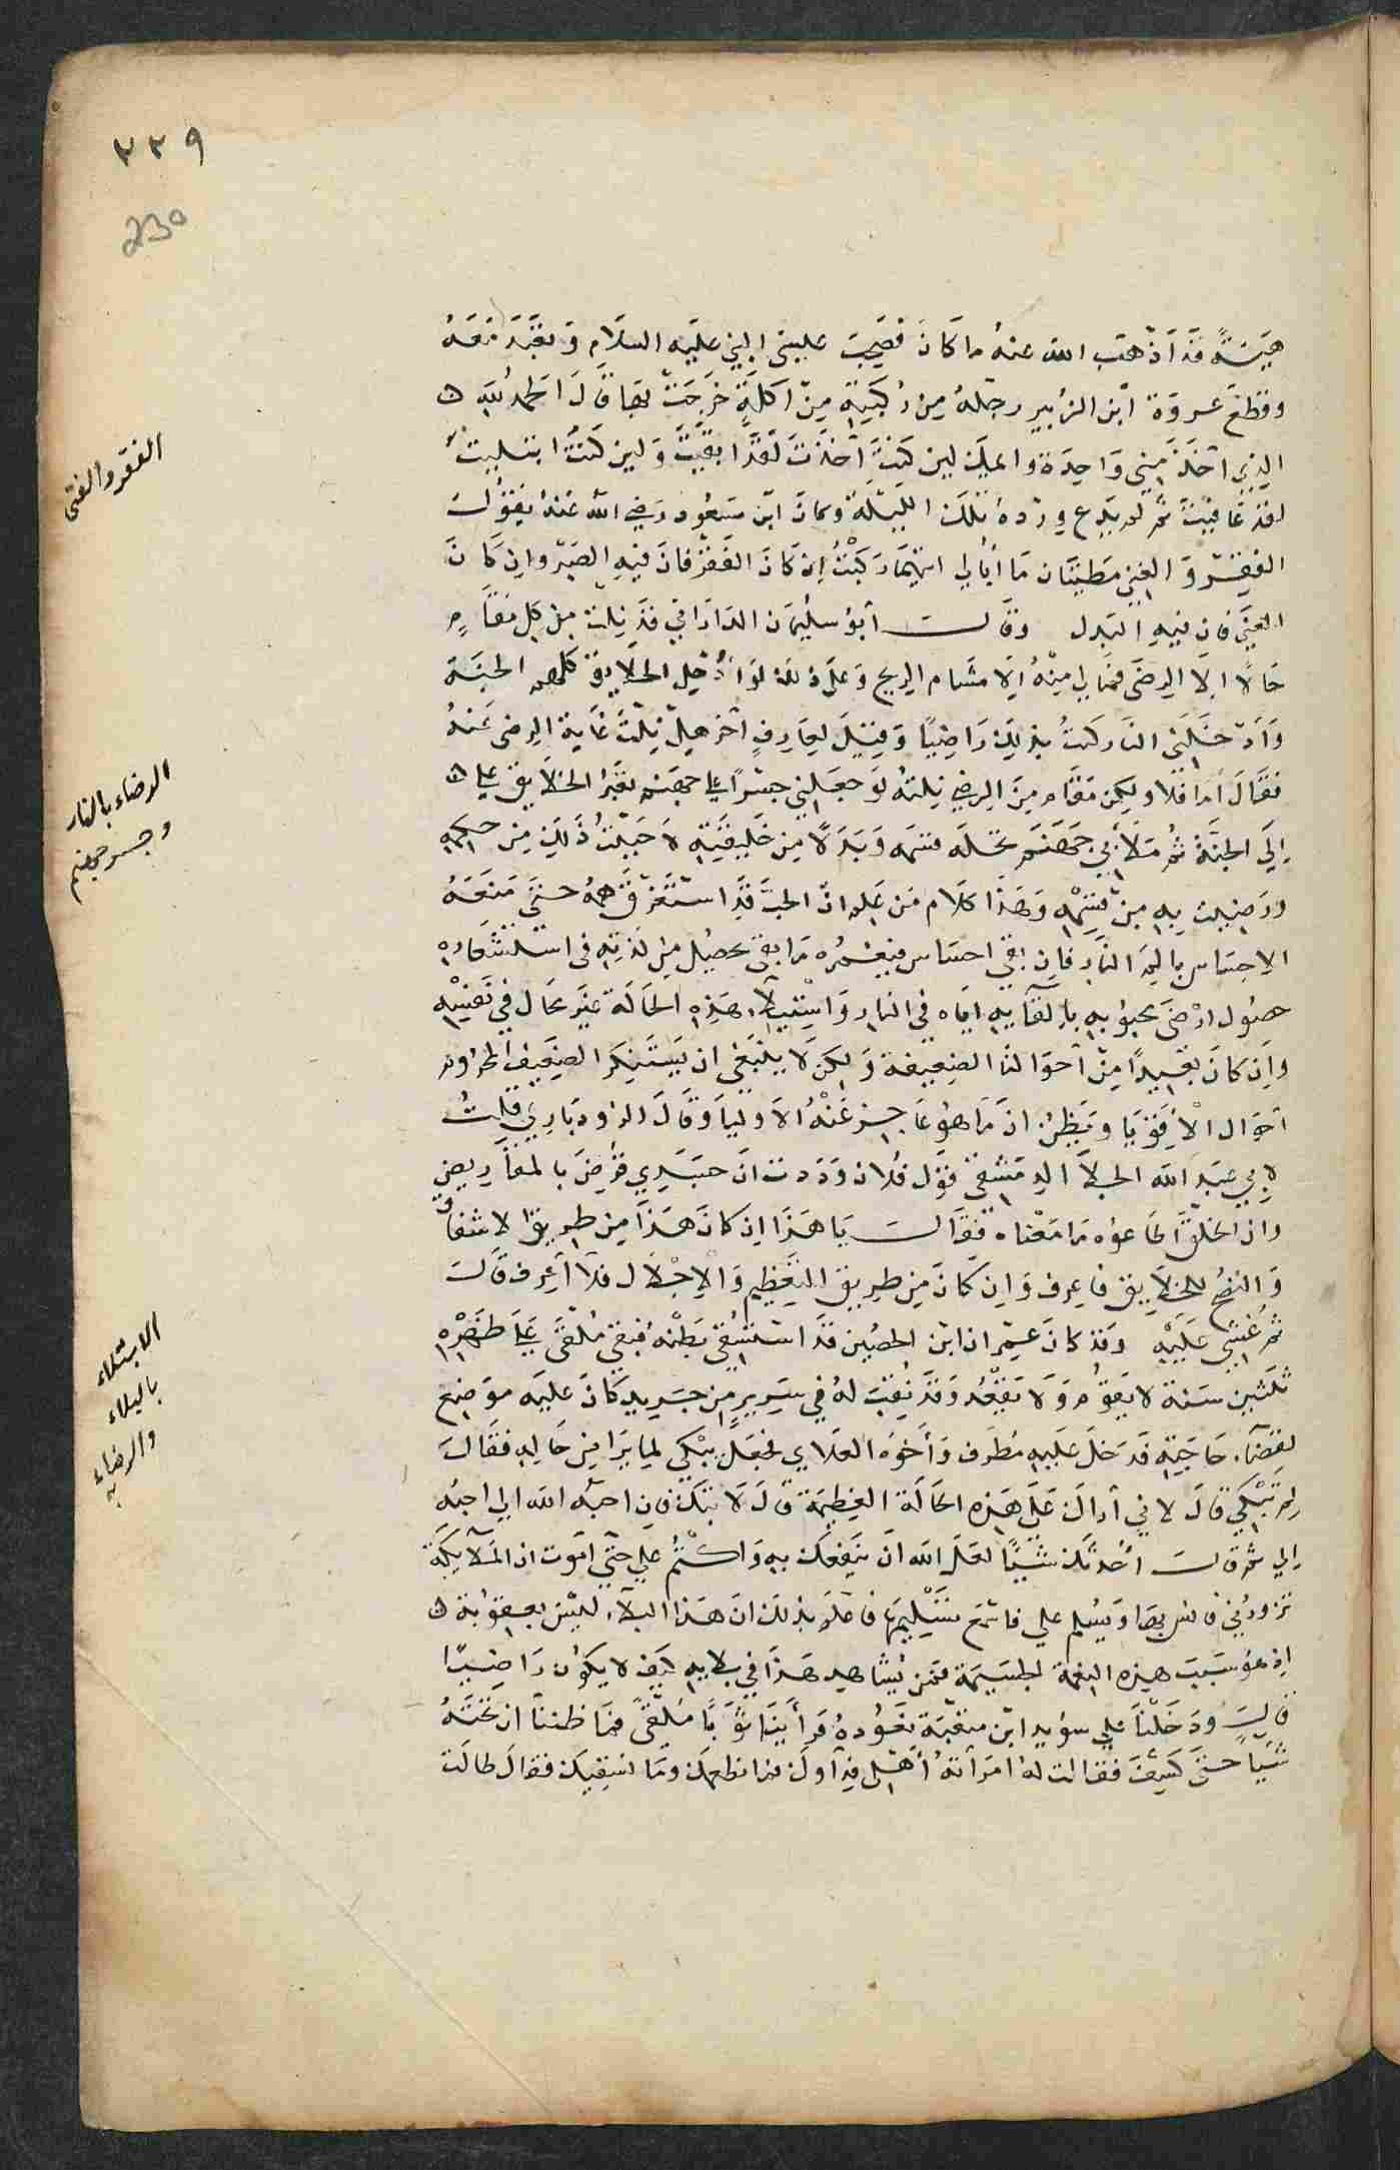 ٢٢٩
230
هيئة قد اذهب الله عنه ما كان فصحب عليسى النبي عليه السلام وتعبد معه
وقطع عروة ابن الزبير رجله من ركبته من اكلة خرجت بها قال الحمد لله
الذي اخذ مني واحدة وايمك لين كنت اخذت لقد ابقيت ولين كنت ابتليت
لقد عافيت ثم لم يدع ورده تلك الليلة وكان ابن مسعود رضي الله عنه يقول
الفقر والغنى مطيتان ما أبالي ايتهما ركبت إن كان الفقر فان فيه الصبر وان كان
الغنى فان فيه البذل وقال ابو سليمان الداراني قد نلت من كل مقام
حالا الا الرضى فمالي منه الا مشام الريح وعلى ذلك لو ادخل الخلايق كلهم الجنة
وادخلني النار كنت بذلك راضيا وقيل لعارف اخر هل نلت غاية الرضى عنه
فقال اما فلا ولكن مقام من الرضي نلته لو جعلني جسرا على جهنم يعبر الخلايق علي
إلى الجنة ثم ملأ بي جهنم تحله قسمه وبدلا من خليقته لاحببت ذلك من حكمه
ورضيت به من قسمه وهذا كلام من علم ان الحب قد استغرق همه حتى منعه
الاحساس بالم النار فان بقي احساس فيغمره ما يحصل من لذته في استشعاره
حصول رضى محبوبه بالقايه اياه في النار واستيلاء هذه الحالة غير محال في نفسه
وان كان بعيدا من احوالنا الضعيفة ولكن لا ينبغي ان يستنكر الضعيف المحروم
احوال الاقويا ويظن ان ما هو عاجز عنه الاوليا وقال الروذباري قلت
لابي عبد الله الجلا الدمشقي قول فلان وددت ان جسدي قرض بالمقاريض
وان الخلق اطاعوه ما معناه فقال يا هذا ان كان هذا من طريق الاشفاق
والنصح للخلايق فاعرف وان كان من طريق التعظيم والاجلال فلا اعرف قال
ثم غشي عليه وقد كان عمران ابن الحصين قد استسقى بطنه فبقي ملقى على ظهره
ثلثين سنة لا يقوم ولا يقعد وقد نقب له في سرير من جريد كان عليه موضع
لقضاء حاجته فدخل عليه مطرف واخوه العلاي فجعل يبكي لما يرا من حاله فقال
لم تبكي قال لاني اراك على هذه الحالة العظيمة قال لا تبك فان احبه الله الي احبه
الي ثم قال احدثك شيئا لعل الله ان ينفعك به واكتم علي حتى اموت ان الملايكة
تزورني فانس بها ويسلم علي فاسمع تسليمها فاعلم بذلك ان هذا البلاء ليس بعقوبة
اذ هو سبب هذه النعمة الجسيمة فمن يشاهد هذا في بلايه كيف لا يكون راضيا
قال ودخلنا علي سويد ابن متعبة نعوده فراينا ثوبا ملقى فما ظننا ان تحته
شيا حتى كشف فقالت له امراته أهلي فداوك ما نطعمك وما نسقيك فقال طالت
الفقر والغنى
الرضاء بالنار
وجسر جهنم
الابتلاء
بالبلاء
والرضاء
به